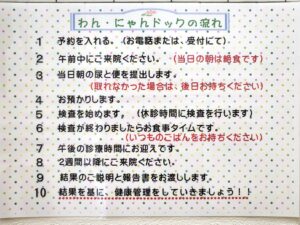 わん・にゃんドックの流れ
1 予約を入れる。（お電話または、受付にて）
2 午前中にご来院ください。（当日の朝は絶食です）
3 当日朝の尿と便を提出します。
（取れなかった場合は、後日お持ちください）
4 お預かりします。
5 検査を始めます。（休診時間に検査を行います）
6 検査が終わりましたらお食事タイムです。
（いつものごはんをお持ちください）
7 午後の診療時間にお迎えです。
8 2週間以降にご来院ください。
9 結果のご説明と報告書をお渡しします。
10 結果を基に、健康管理をしていきましょう！！